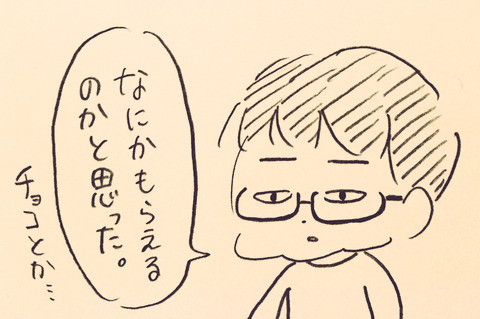 なにかもらえる
のかと思った。
チョコとか…